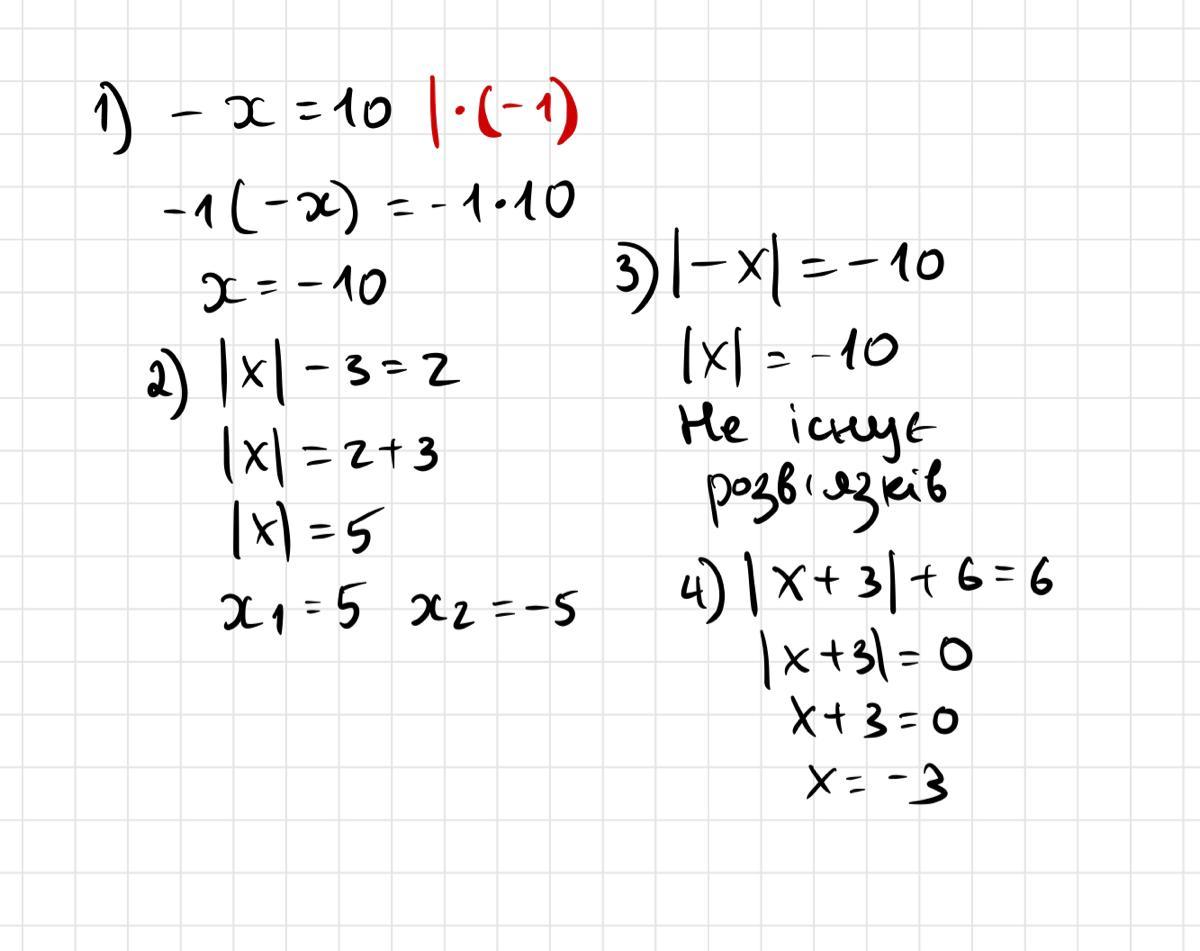 1) - x = 10 | · (-1)
-1(-x) = -1·10
x = -10
2) |x| - 3 = 2
|x| = 2+3
|x| = 5
x1 = 5 x2 = -5
3) |-x| = -10
|x| = -10
Не існує
розв'язків
4) |x+3| + 6 = 6
|x+3| = 0
x+3 = 0
x = -3